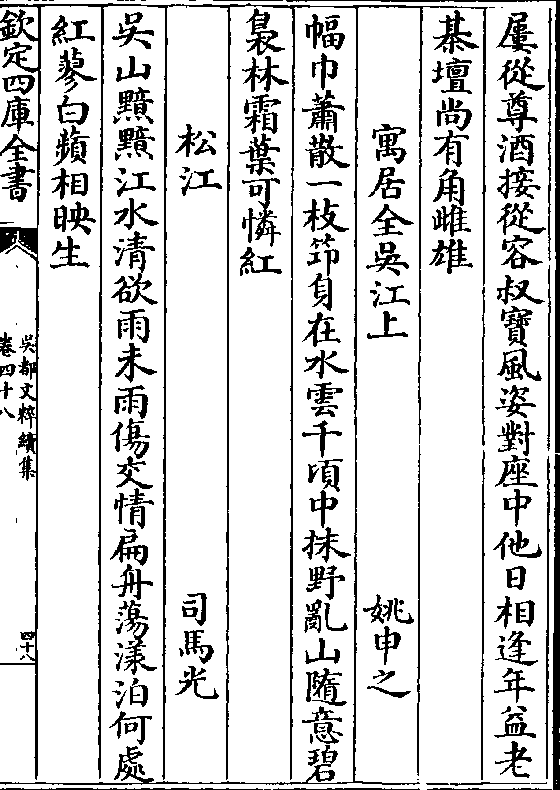 屢從尊酒接從容叔寶風姿對座中他日相逢年益老
棊壇尚有角雌雄
寓居全吳江上 姚申之
幅巾蕭散一枝筇身在水雲千頃中抹野亂山隨意碧
裊林霜葉可憐紅
松江 司馬光
吳山黯黯江水清欲雨未雨傷交情扁舟蕩漾泊何處
紅蓼白蘋相映生
欽定四庫全書
吳都文粹續集
卷四十八
四十八